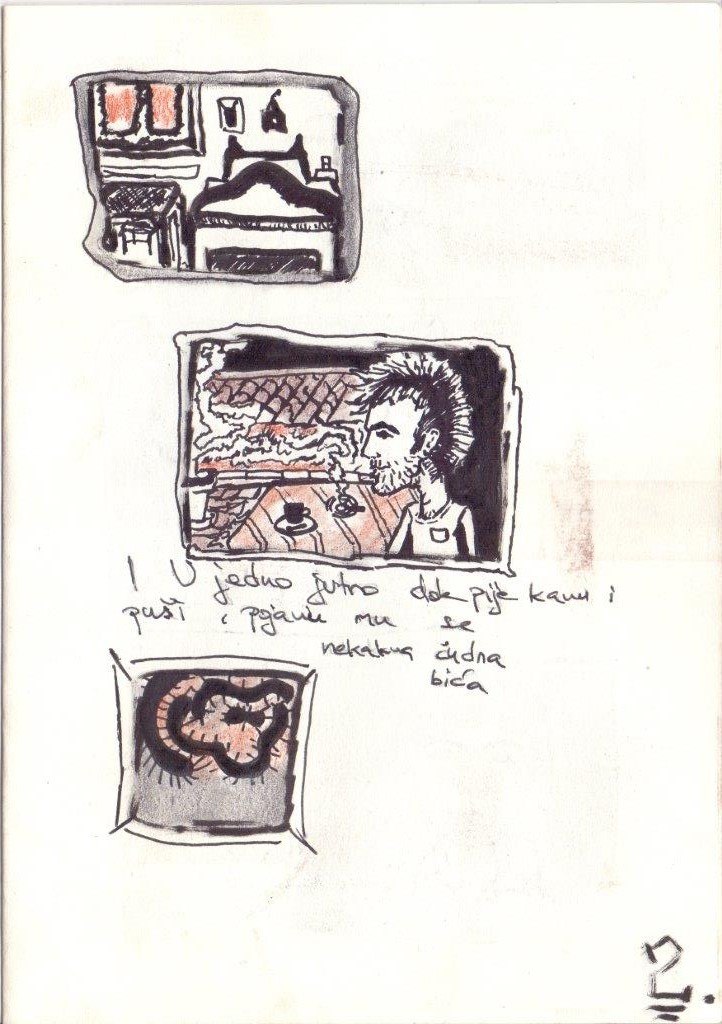 I U jedno jutro dok pije kavu i
puši, pojave mu se
nekakva čudna
bića